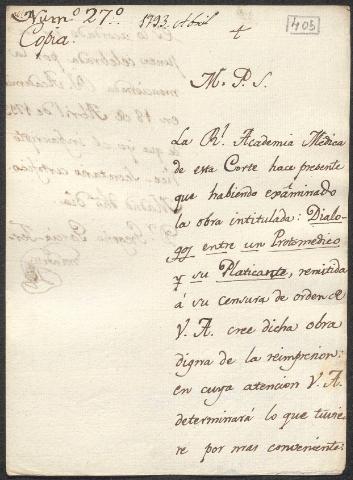 Num.º 27.º
1793. Abril
405
Copia.
+
M. P. S.
La R.l Academia Médica
de esta Corte hace presente
que habiendo exâminado
la obra intitulada: Dialo-
gos entre un Protomedico
y su Platicante, remitida
á su censura de orden de
V. A. cree dicha obra
digna de la reimpresion:
en cuya atencion V. A.
determinará lo que tuvie-
re por mas conveniente: